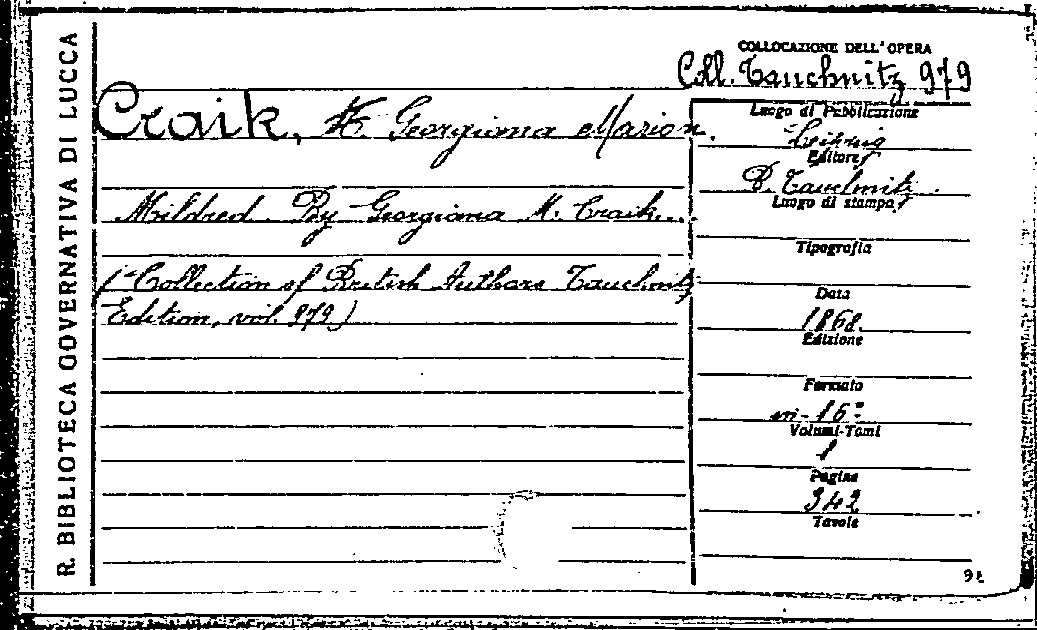 R. BIBLIOTECA GOVERNATIVA DI LUCCA
COLLOCAZIONE DELL'OPERA
Coll. Tauchnitz 979
Craik, Georgiana Marion.
Mildred. By Georgiana M. Craik.
(= Collection of British Authors Tauchnitz
Edition, vol. 979)
Luogo di Pubblicazione
Leipzig
Editore
B. Tauchnitz
Luogo di stampa
Tipografia
Data
1868
Edizione
Formato
in-16°
Volumi-Tomi
1
Pagine
342
Tavole